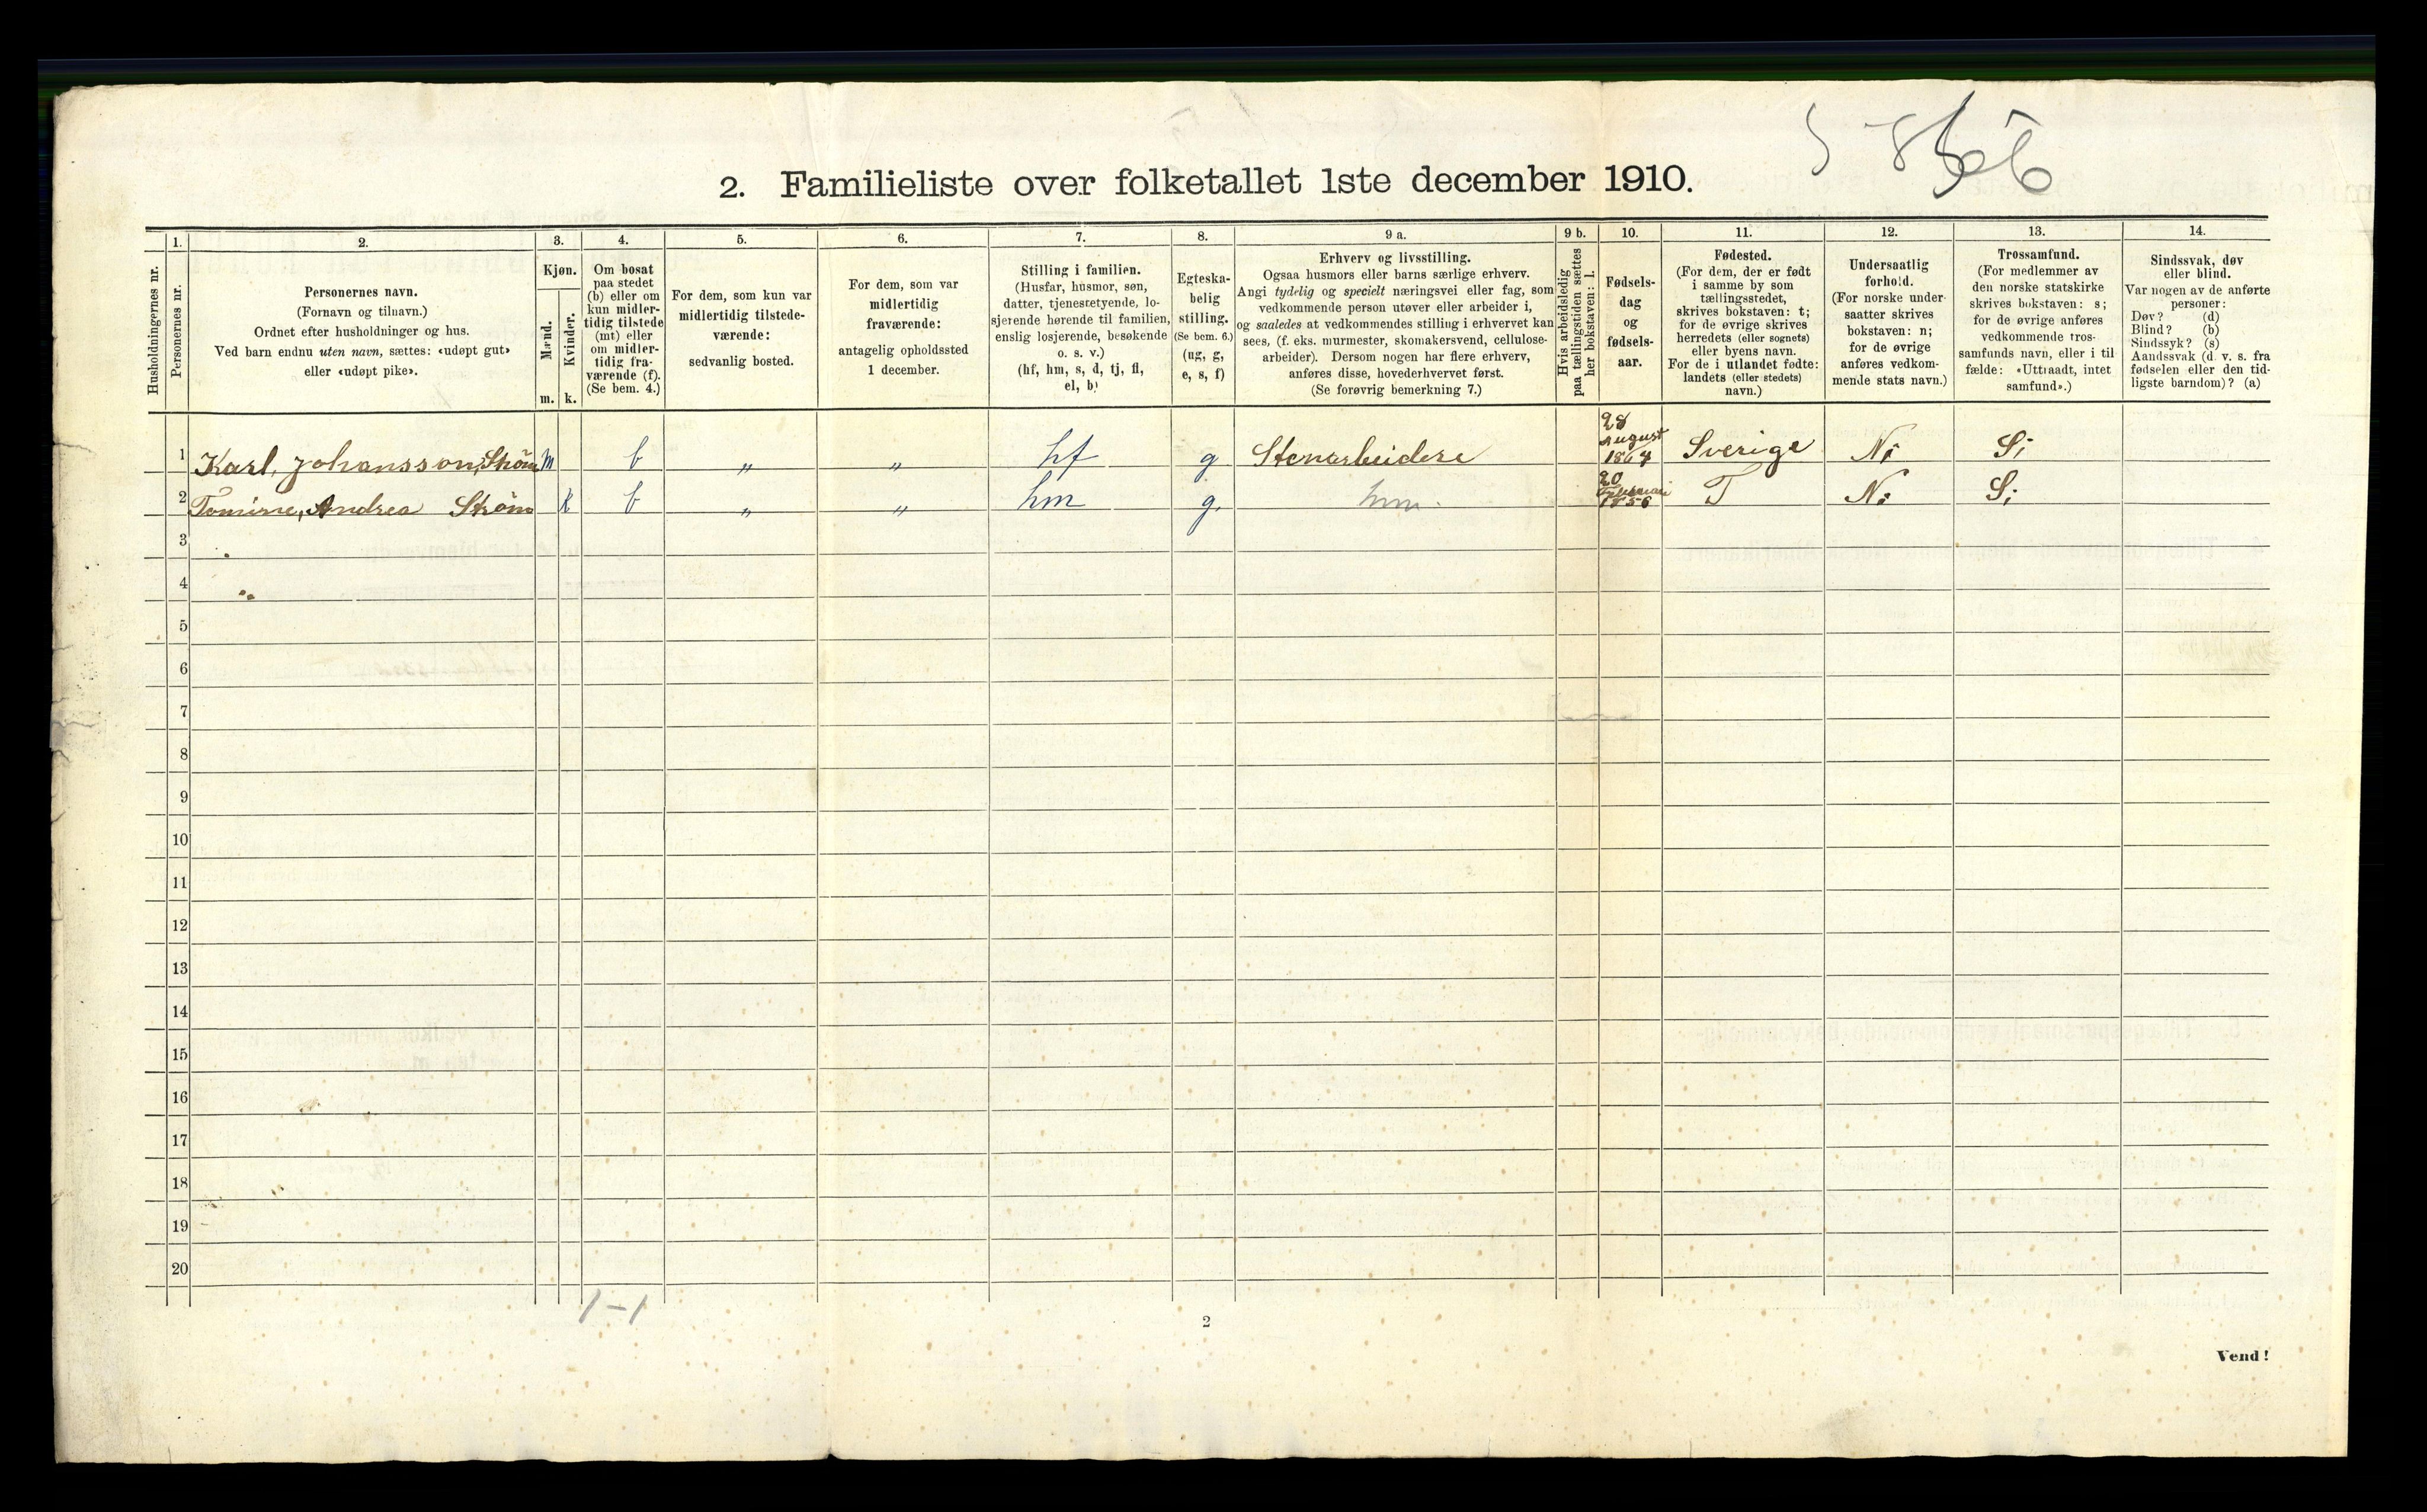 2. Familieliste over folketallet 1ste december 1910.
Husholdningernes nr.
1.
Personernes nr.
2.
Personernes navn.
(Fornavn og tilnavn.)
Ordnet efter husholdninger og hus.
Ved barn endnu uten navn, sættes: «udøpt gut»
eller «udøpt pike».
3.
Kjøn.
Mænd.
Kvinder.
m. k.
4.
Om bosat
paa stedet
(b) eller om
kun midler-
tidig tilstede
(mt) eller
om midler-
tidig fra-
værende (f).
(Se bem. 4.)
5.
For dem, som kun var
midlertidig tilstede-
værende:
sedvanlig bosted.
6.
For dem, som var
midlertidig
fraværende:
antagelig opholdssted
1 december.
7.
Stilling i familien.
(Husfar, husmor, søn,
datter, tjenestetyende, lo-
sjerende hørende til familien,
enslig losjerende, besøkende
o. s. v.)
(hf, hm, s, d, tj, fl,
el, b)
8.
Egteska-
belig
stilling.
(Se bem. 6.)
(ug, g,
e, s, f)
9 a.
Erhverv og livsstilling.
Ogsaa husmors eller barns særlige erhverv.
Angi tydelig og specielt næringsvei eller fag, som
vedkommende person utøver eller arbeider i,
og saaledes at vedkommendes stilling i erhvervet kan
sees, (f. eks. murmester, skomakersvend, cellulose-
arbeider). Dersom nogen har flere erhverv,
anføres disse, hovederhvervet først.
(Se forøvrig bemerkning 7.)
9 b.
Hvis arbeidsledig
paa tællingstiden sættes
her bokstaven: l.
10.
Fødsels-
dag
og
fødsels-
aar.
11.
Fødested.
(For dem, der er født
i samme by som
tællingsstedet,
skrives bokstaven: t;
for de øvrige skrives
herredets (eller sognets)
eller byens navn.
For de i utlandet fødte:
landets (eller stedets)
navn.)
12.
Undersaatlig
forhold.
(For norske under-
saatter skrives
bokstaven: n;
for de øvrige
anføres vedkom-
mende stats navn.)
13.
Trossamfund.
(For medlemmer av
den norske statskirke
skrives bokstaven: s;
for de øvrige anføres
vedkommende tros-
samfunds navn, eller i til
fælde: «Uttraadt, intet
samfund».)
14.
Sindssvak, døv
eller blind.
Var nogen av de anførte
personer:
Døv? (d)
Blind? (b)
Sindssyk? (s)
Aandssvak (d. v. s. fra
fødselen eller den tid-
ligste barndom)? (a)
1 Karl, Johansson, Ström m b „ „ hf g Stenarbeidere 28 August 1864 Sverige N; S;
2 Tomine, Andrea Ström k b „ „ hm g. hm. 20 Februari 1856 T N; S;
3
4
5
6
7
8
9
10
11
12
13
14
15
16
17
18
19
20
1-1
2
Vend!